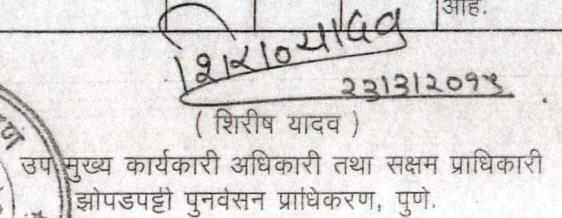 आहे.
शिरीष यादव
२३।३।२०१५
( शिरीष यादव )
उप मुख्य कार्यकारी अधिकारी तथा सक्षम प्राधिकारी
झोपडपट्टी पुनर्वसन प्राधिकरण, पुणे.